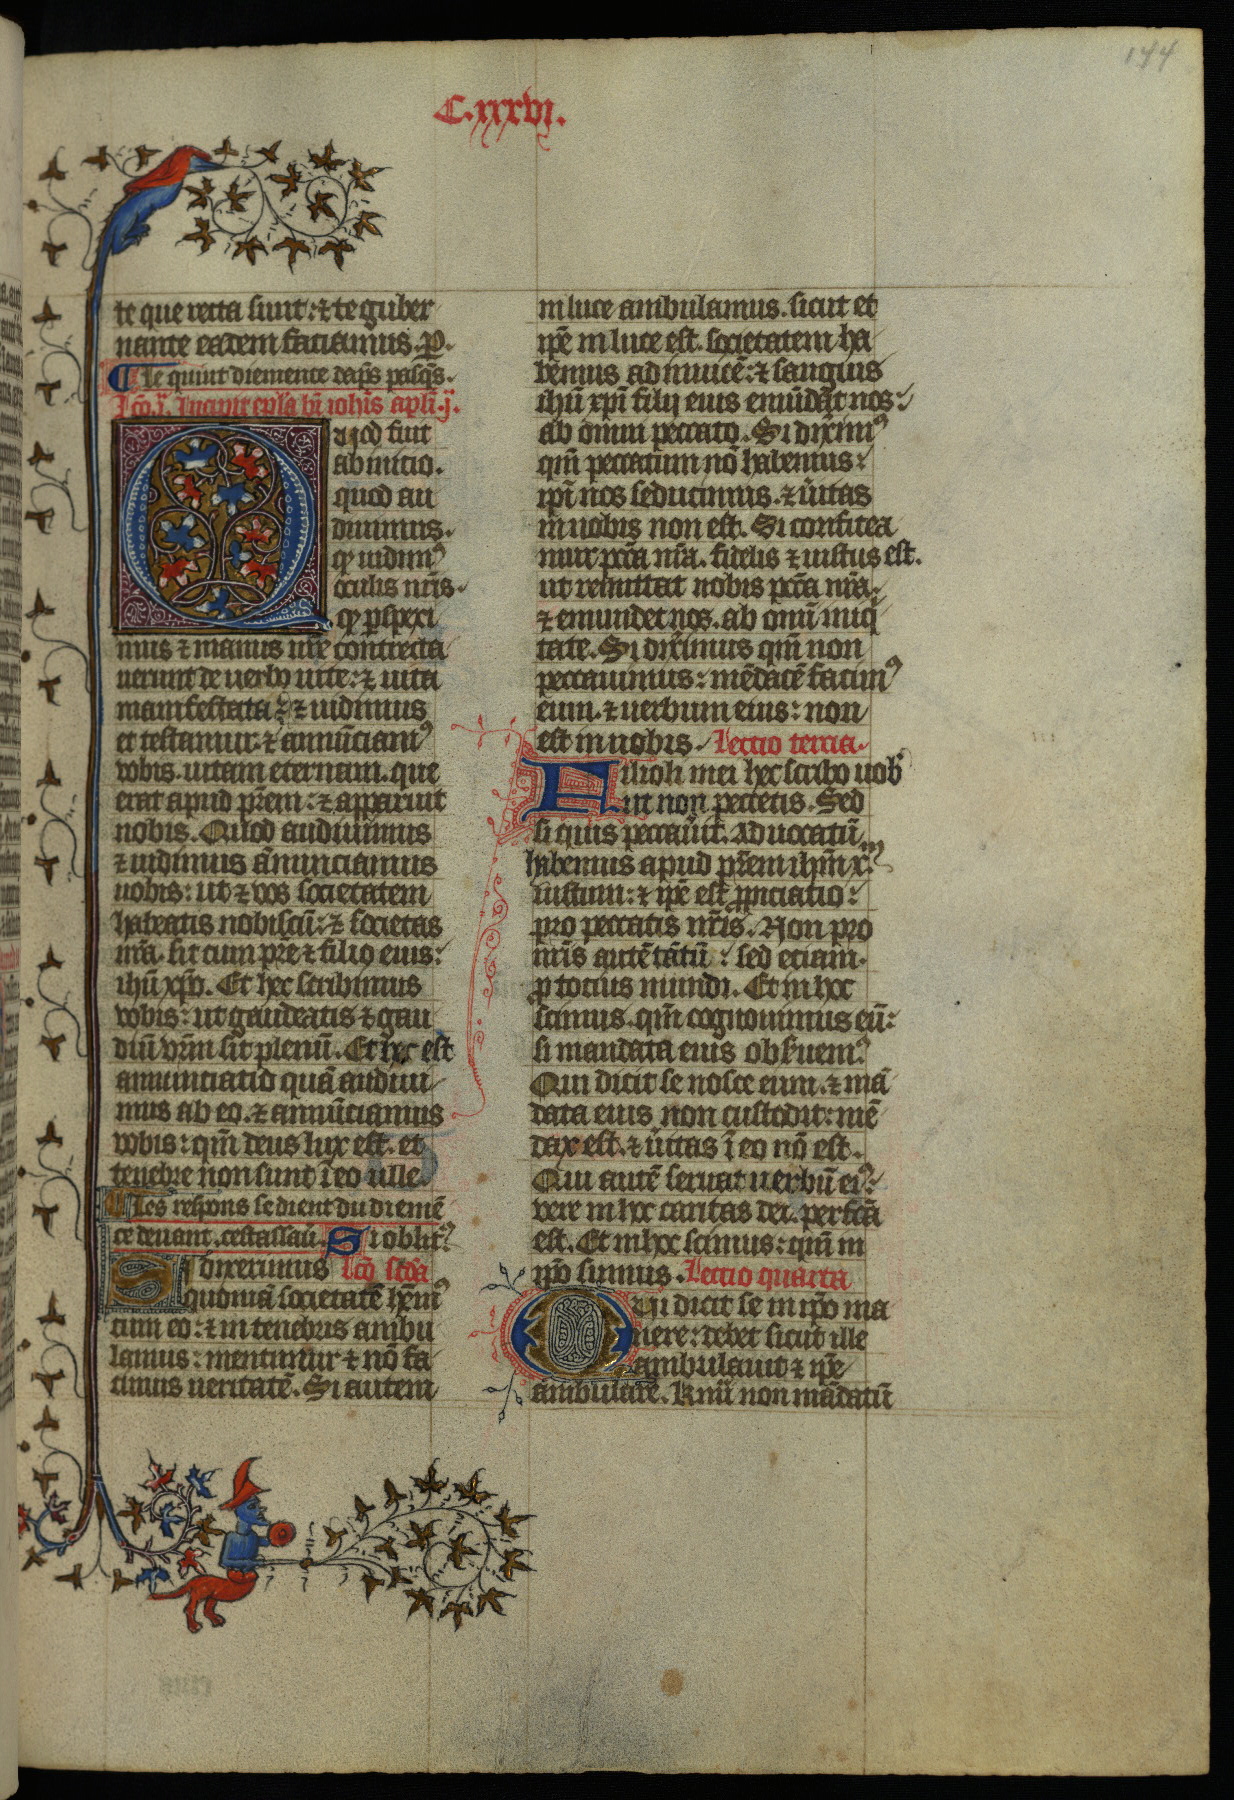 144
C.xxxvi.
te que recta sunt: ⁊ te guber
nante eadem faciamus. P.
Le quint diemence daps̄ pasq̄s.
Lcō.j. Incipit epl̄a bī ioħis apl̄i.j.
Quod fuit
ab inicio.
quod au
diuimus.
qđ uidimꝰ
oculis nr̄is.
qđ ꝑspexi
mus ⁊ manus nr̄e contrecta
uerunt de uerbo uite: ⁊ uita
manifestata ē ⁊ uidimus
et testamur: ⁊ annūciamꝰ
vobis. uitam eternam. que
erat apud pr̄em: ⁊ apparuit
nobis. Quod audiuimus
⁊ uidimus annunciamus
uobis: ut ⁊ vos societatem
habeatis nobiscū: ⁊ societas
nr̄a. sit cum pr̄e ⁊ filio eius:
ihū xp̄o. Et hec scribimus
vobis: ut gaudeatis ⁊ gau
diū vr̄m sit plenū. Et hec est
annunciatio quā audiui
mus ab eo. ⁊ annūciamus
vobis: qm̄ deus lux est. et
tenebre non sunt ī eo ulle.
Les respons se dient du diemē
ce deuant. cest assau. Si oblitꝰ
Si dixerimus Lcō scd̄a
quoniā societatē hēmꝰ
cum eo: ⁊ in tenebris ambu
lamus: mentimur ⁊ nō fa
cimus ueritatē. Si autem
in luce ambulamus. sicut et
ip̄e in luce est. societatem ha
bemus ad inuicē: ⁊ sanguis
ihū xp̄i filij eius emūdat nos:
ab omni peccato. Si diximꝰ
qm̄ peccatum nō habemus:
ip̄i nos seducimus. ⁊ ūitas
in nobis non est. Si confitea
mur pcc̄a nr̄a. fidelis ⁊ iustus est.
ut remittat nobis pcc̄a nr̄a:
⁊ emundet nos. ab omī iniq̄
tate. Si dixerimus qm̄ non
peccauimus: mēdacē facimꝰ
eum. ⁊ uerbum eius: non
est in nobis. Lectio tercia.
Filioli mei hec scribo uob̄
ut non peccetis. Sed
si quis peccauit. aduocatū
habemus apud pr̄em ihm̄ x̄m
iustum: ⁊ ip̄e est ꝓpiciatio:
pro peccatis nr̄is. Non pro
nr̄is autē tātū: sed etiam
ꝓ tocius mundi. Et in hoc
scimus. qm̄ cognouimus eū:
si mandata eius obseruemꝰ
Qui dicit se nosce eum. ⁊ mā
data eius non custodit: mē
dax est. ⁊ ūitas ī eo nō est.
Qui autē seruat uerbū eiꝰ:
vere in hoc caritas dei. perfc̄a
est. Et in hoc scimus: qm̄ in
ip̄o sumus. Lectio quarta
Qui dicit se in ip̄o ma
nere: debet sicut ille
ambulauit ⁊ ip̄e
ambulare. Kmi non mādatū